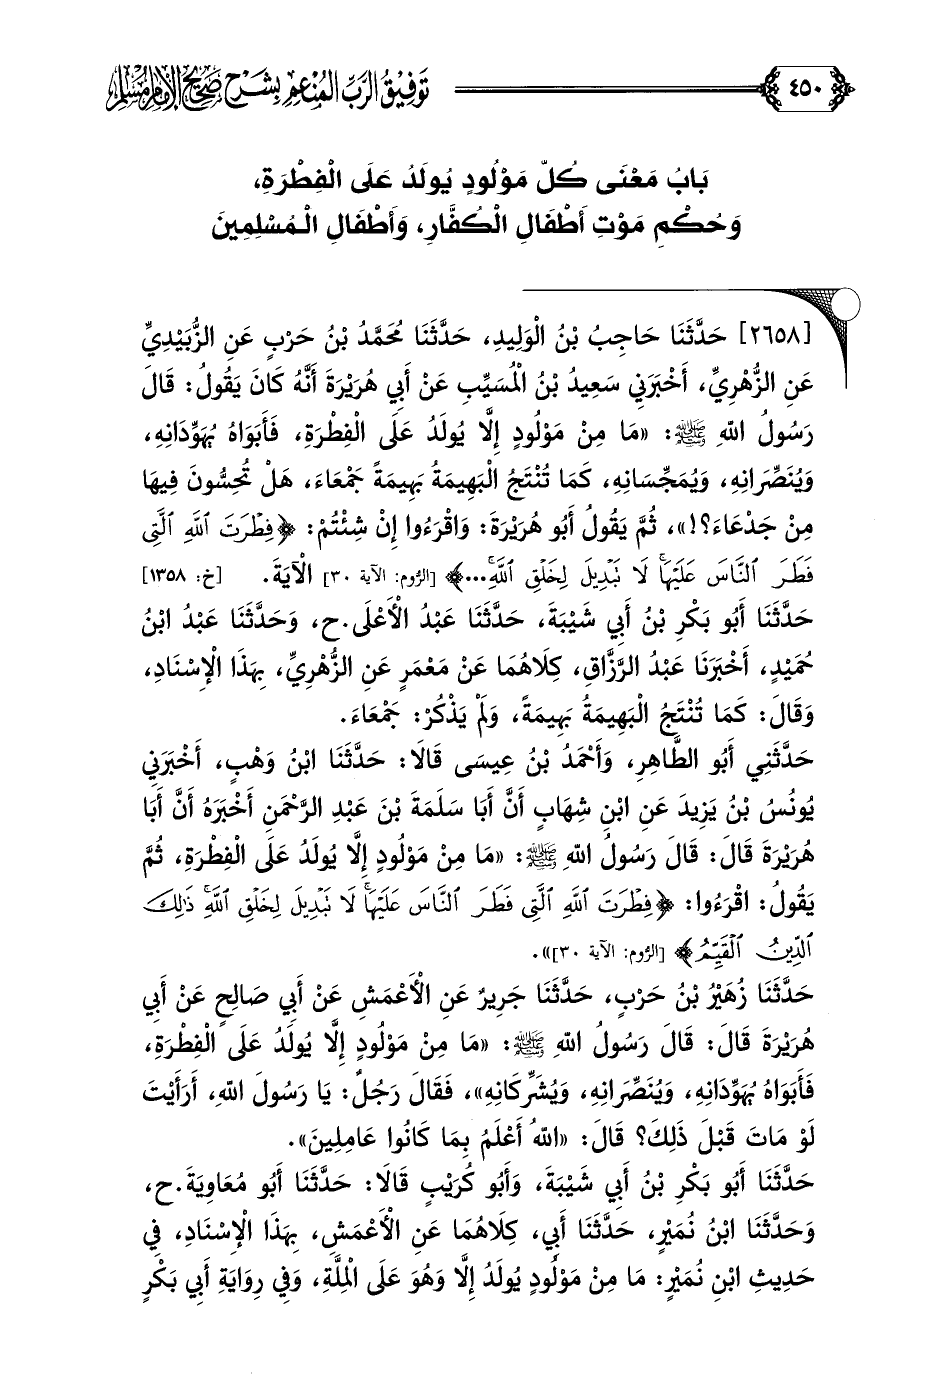 ٤٥٠
تَوْفِيْقُ الرَّبِّ الْمُنْعِمِ بِشَرْحِ صَحِيْحِ الْإِمَامِ مُسْلِمٍ
بَابُ مَعْنَى كُلُّ مَوْلُودٍ يُولَدُ عَلَى الْفِطْرَةِ،
وَحُكْمِ مَوْتِ أَطْفَالِ الْكُفَّارِ، وَأَطْفَالِ الْمُسْلِمِينَ
[٢٦٥٨] حَدَّثَنَا حَاجِبُ بْنُ الْوَلِيدِ، حَدَّثَنَا مُحَمَّدُ بْنُ حَرْبٍ عَنِ الزُّبَيْدِيِّ
عَنِ الزُّهْرِيِّ، أَخْبَرَنِي سَعِيدُ بْنُ الْمُسَيِّبِ عَنْ أَبِي هُرَيْرَةَ أَنَّهُ كَانَ يَقُولُ: قَالَ
رَسُولُ اللهِ ﷺ: «مَا مِنْ مَوْلُودٍ إِلَّا يُولَدُ عَلَى الْفِطْرَةِ، فَأَبَوَاهُ يُهَوِّدَانِهِ،
وَيُنَصِّرَانِهِ، وَيُمَجِّسَانِهِ، كَمَا تُنْتَجُ الْبَهِيمَةُ بَهِيمَةً جَمْعَاءَ، هَلْ تُحِسُّونَ فِيهَا
مِنْ جَدْعَاءَ؟!»، ثُمَّ يَقُولُ أَبُو هُرَيْرَةَ: وَاقْرَءُوا إِنْ شِئْتُمْ: ﴿فِطْرَتَ ٱللَّهِ ٱلَّتِى
فَطَرَ ٱلنَّاسَ عَلَيْهَا ۚ لَا نَبْدِيلَ لِخَلْقِ ٱللَّهِ ۚ...﴾ [الرُّوم: الآية ٣٠] الْآيَةَ. [خ: ١٣٥٨]
حَدَّثَنَا أَبُو بَكْرِ بْنُ أَبِي شَيْبَةَ، حَدَّثَنَا عَبْدُ الْأَعْلَى.ح، وَحَدَّثَنَا عَبْدُ ابْنُ
حُمَيْدٍ، أَخْبَرَنَا عَبْدُ الرَّزَّاقِ، كِلَاهُمَا عَنْ مَعْمَرٍ عَنِ الزُّهْرِيِّ، بِهَذَا الْإِسْنَادِ،
وَقَالَ: كَمَا تُنْتَجُ الْبَهِيمَةُ بَهِيمَةً، وَلَمْ يَذْكُرْ: جَمْعَاءَ.
حَدَّثَنِي أَبُو الطَّاهِرِ، وَأَحْمَدُ بْنُ عِيسَى قَالَا: حَدَّثَنَا ابْنُ وَهْبٍ، أَخْبَرَنِي
يُونُسُ بْنُ يَزِيدَ عَنِ ابْنِ شِهَابٍ أَنَّ أَبَا سَلَمَةَ بْنَ عَبْدِ الرَّحْمَنِ أَخْبَرَهُ أَنَّ أَبَا
هُرَيْرَةَ قَالَ: قَالَ رَسُولُ اللهِ ﷺ: «مَا مِنْ مَوْلُودٍ إِلَّا يُولَدُ عَلَى الْفِطْرَةِ، ثُمَّ
يَقُولُ: اقْرَءُوا: ﴿فِطْرَتَ ٱللَّهِ ٱلَّتِى فَطَرَ ٱلنَّاسَ عَلَيْهَا ۚ لَا نَبْدِيلَ لِخَلْقِ ٱللَّهِ ۚ ذَٰلِكَ
ٱلدِّينُ ٱلْقَيِّمُ﴾ [الرُّوم: الآية ٣٠]».
حَدَّثَنَا زُهَيْرُ بْنُ حَرْبٍ، حَدَّثَنَا جَرِيرٌ عَنِ الْأَعْمَشِ عَنْ أَبِي صَالِحٍ عَنْ أَبِي
هُرَيْرَةَ قَالَ: قَالَ رَسُولُ اللهِ ﷺ: «مَا مِنْ مَوْلُودٍ إِلَّا يُولَدُ عَلَى الْفِطْرَةِ،
فَأَبَوَاهُ يُهَوِّدَانِهِ، وَيُنَصِّرَانِهِ، وَيُشَرِّكَانِهِ»، فَقَالَ رَجُلٌ: يَا رَسُولَ اللهِ، أَرَأَيْتَ
لَوْ مَاتَ قَبْلَ ذَلِكَ؟ قَالَ: «اللهُ أَعْلَمُ بِمَا كَانُوا عَامِلِينَ».
حَدَّثَنَا أَبُو بَكْرِ بْنُ أَبِي شَيْبَةَ، وَأَبُو كُرَيْبٍ قَالَا: حَدَّثَنَا أَبُو مُعَاوِيَةَ.ح،
وَحَدَّثَنَا ابْنُ نُمَيْرٍ، حَدَّثَنَا أَبِي، كِلَاهُمَا عَنِ الْأَعْمَشِ، بِهَذَا الْإِسْنَادِ، فِي
حَدِيثِ ابْنِ نُمَيْرٍ: مَا مِنْ مَوْلُودٍ يُولَدُ إِلَّا وَهُوَ عَلَى الْمِلَّةِ، وَفِي رِوَايَةِ أَبِي بَكْرٍ